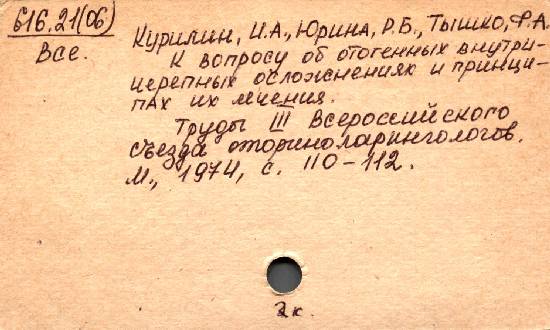 616.21(06)
Все.
Курилин, И.А., Юрина, Р.Б., Тышко, Ф.А.
К вопросу об отогенных внутри-
черепных осложнениях и принци-
пах их лечения.
Труды III Всероссийского
съезда оториноларингологов.
М., 1974, с. 110-112.
2к.